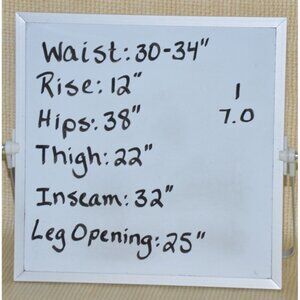 Waist: 30-34"
Rise: 12"
Hips: 38"
Thigh: 22"
Inseam: 32"
Leg Opening: 25"
1
7.0